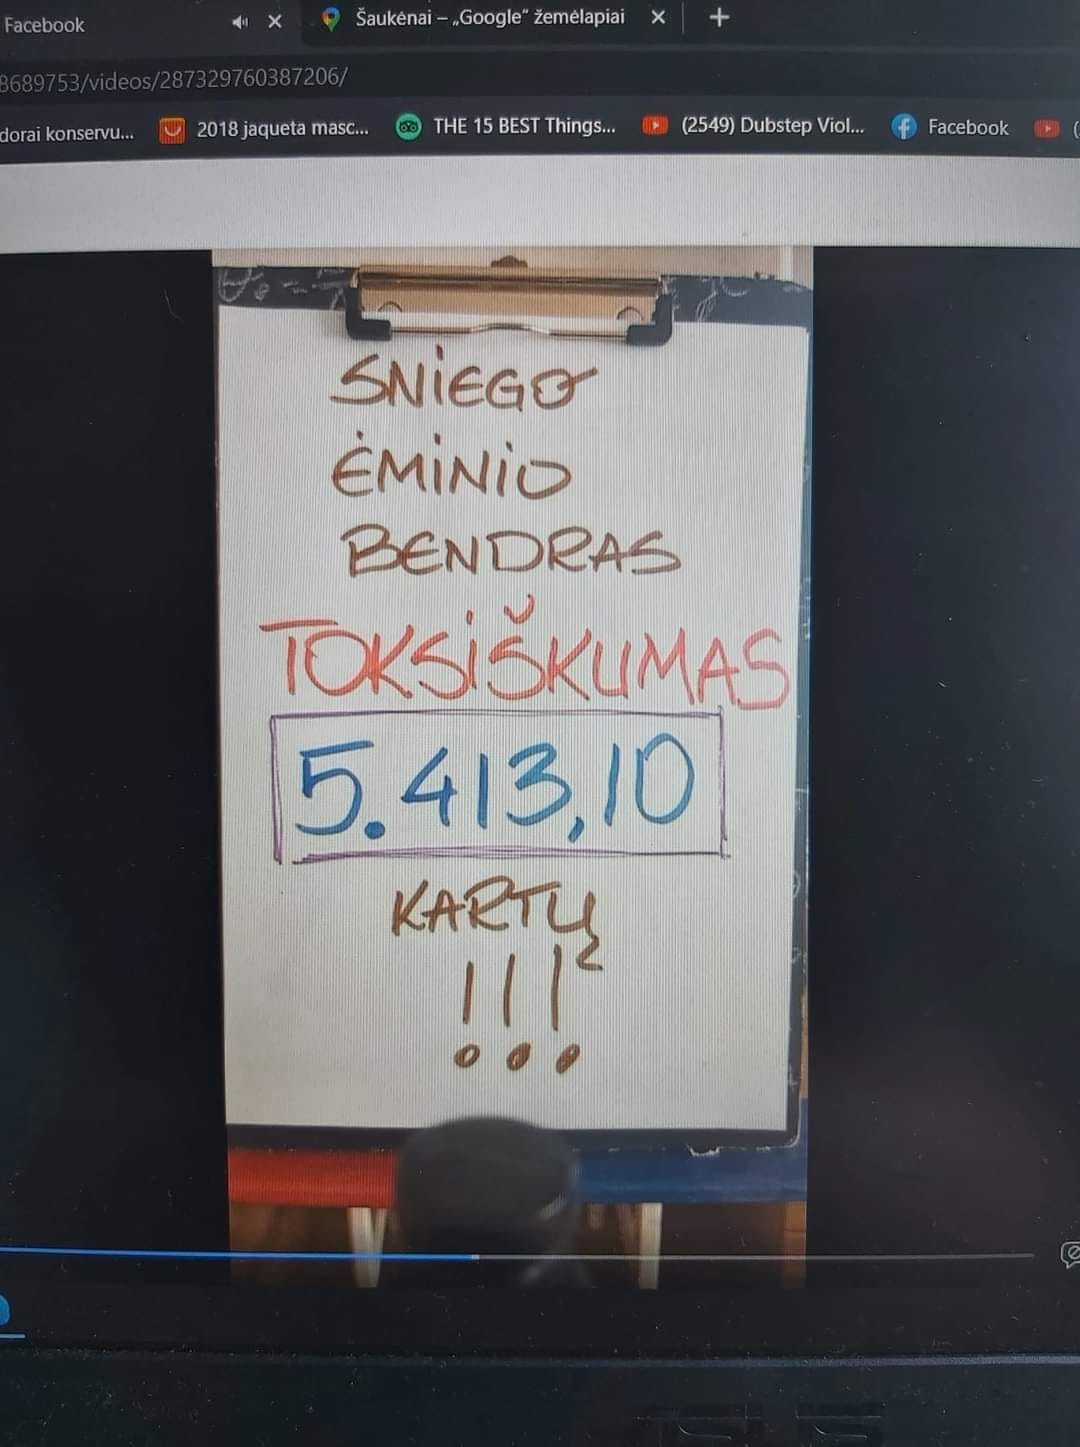 Facebook
Šaukėnai – „Google“ žemėlapiai
8689753/videos/287329760387206/
dorai konservu...
2018 jaqueta masc...
THE 15 BEST Things...
(2549) Dubstep Viol...
Facebook
SNIEGO
ĖMINIO
BENDRAS
TOKSIŠKUMAS
5.413,10
KARTŲ
!!!